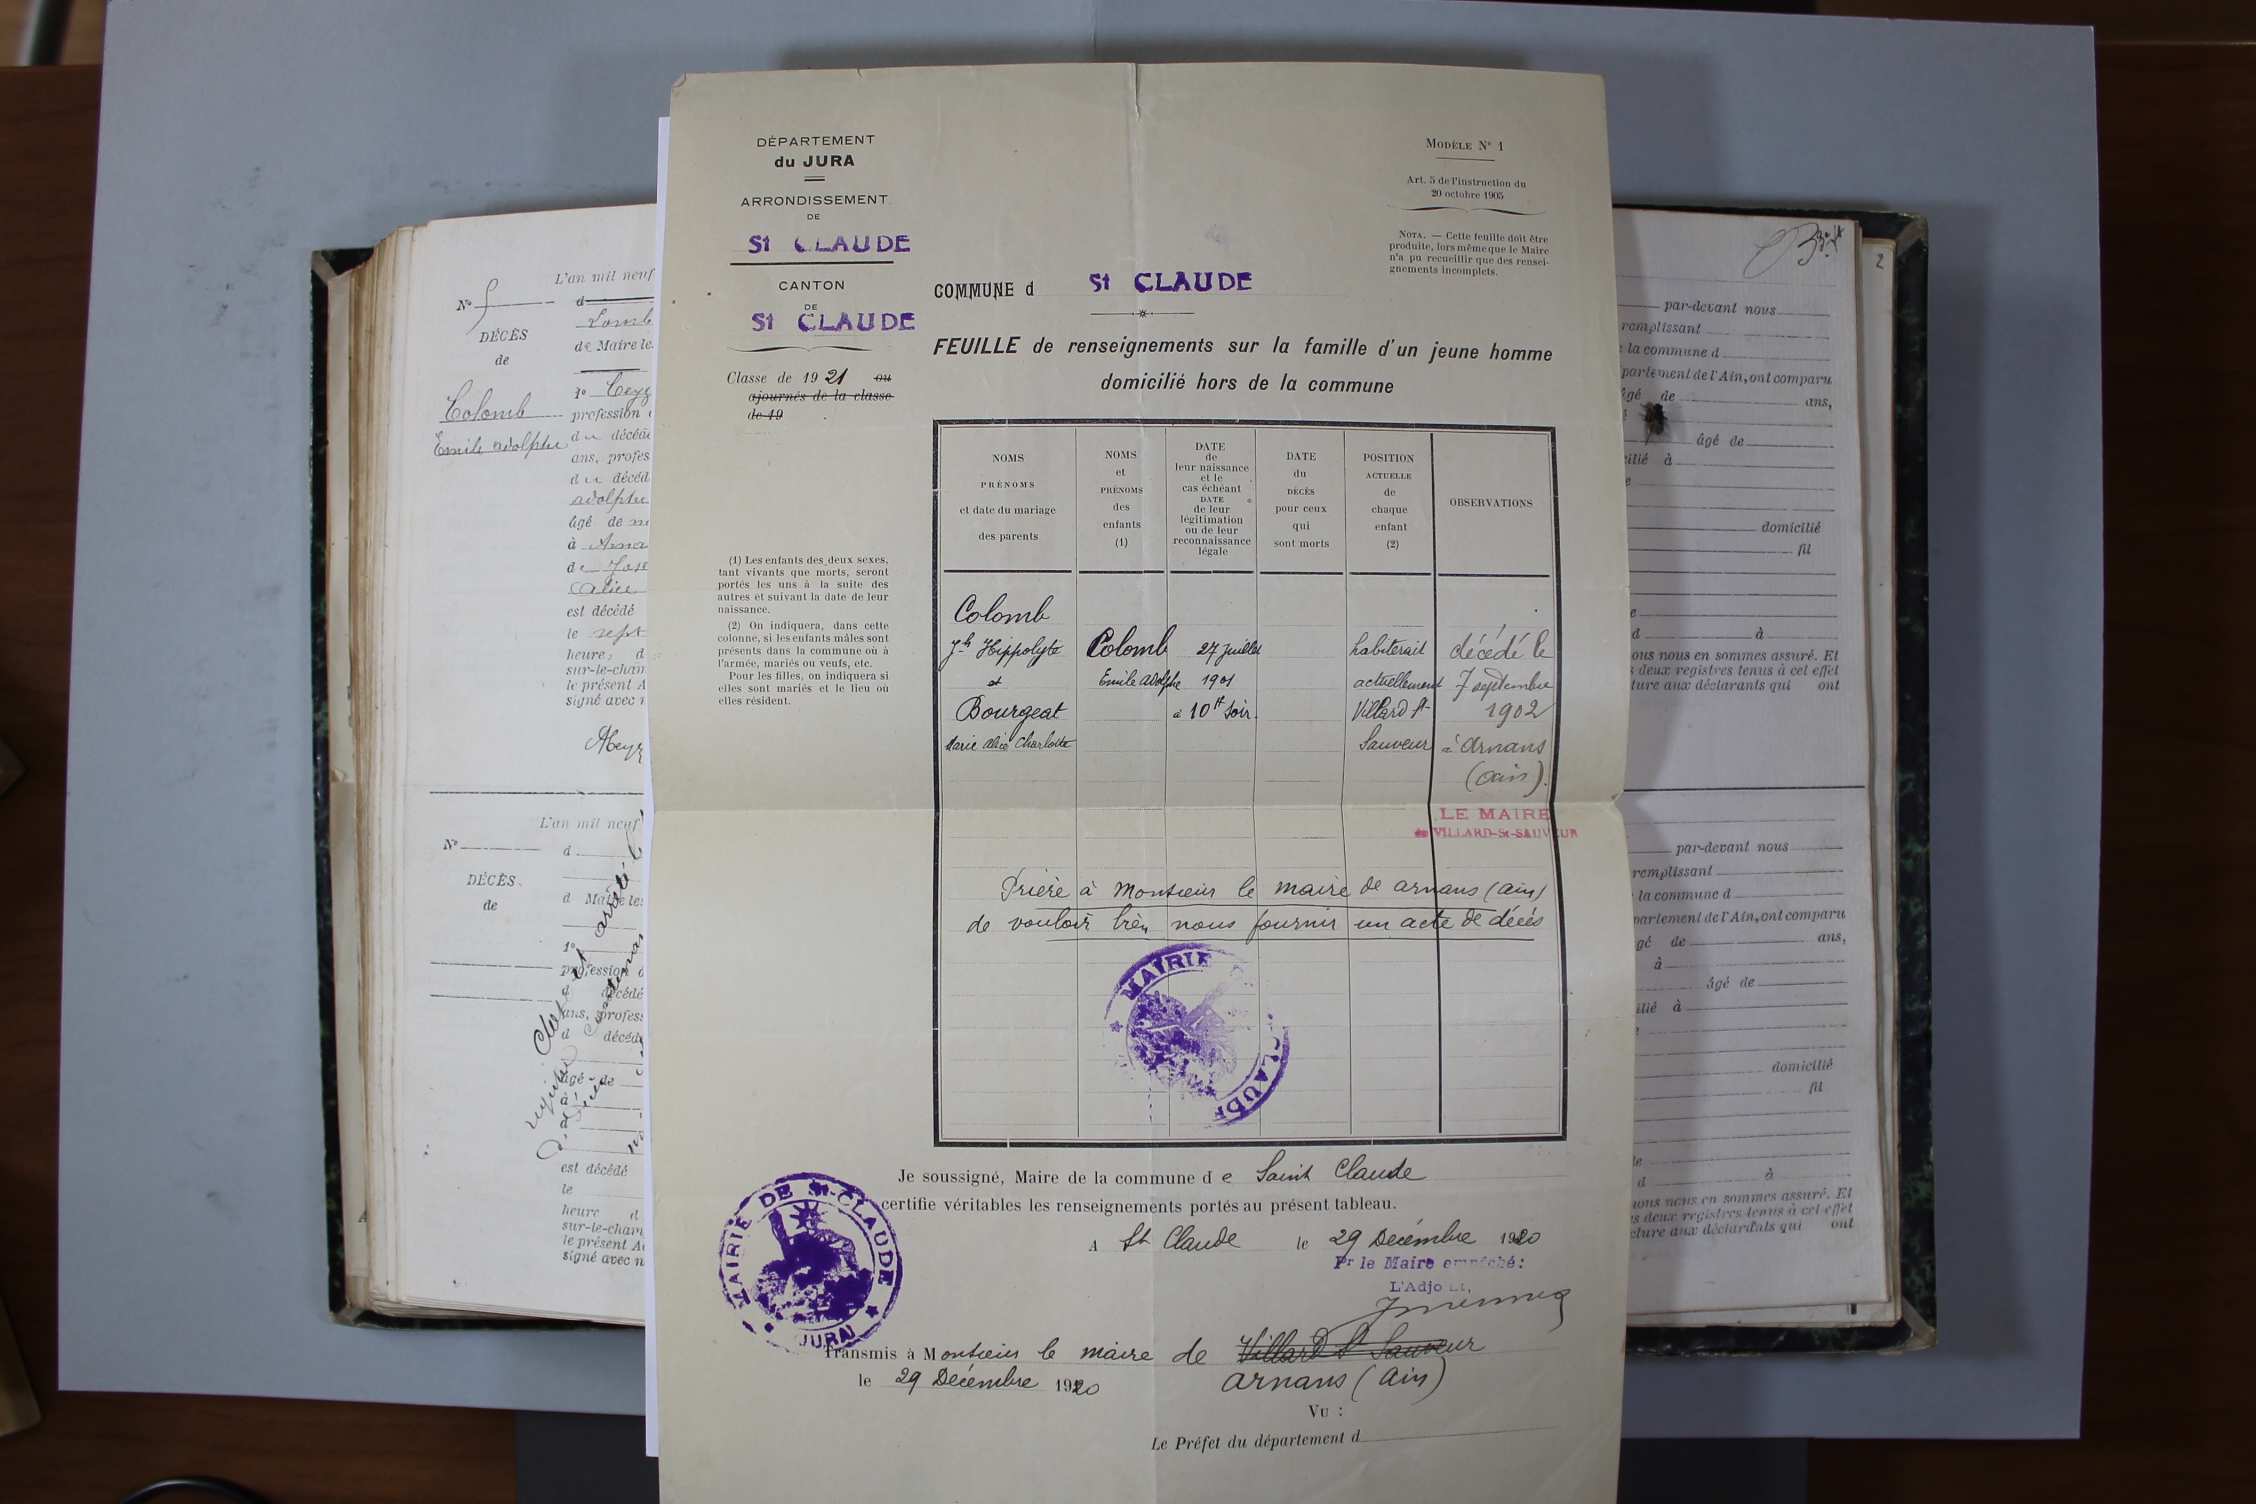 DÉPARTEMENT
du JURA
ARRONDISSEMENT
DE
St CLAUDE
CANTON
DE
St CLAUDE
Classe de 1921 ou
ajournés de la classe
de 19
MODÈLE N° 1
Art. 5 de l'instruction du
20 octobre 1905
NOTA. — Cette feuille doit être
produite, lors même que le Maire
n'a pu recueillir que des rensei-
gnements incomplets.
COMMUNE d St CLAUDE
FEUILLE de renseignements sur la famille d'un jeune homme
domicilié hors de la commune
(1) Les enfants des deux sexes,
tant vivants que morts, seront
portés les uns à la suite des
autres et suivant la date de leur
naissance.
(2) On indiquera, dans cette
colonne, si les enfants mâles sont
présents dans la commune ou à
l'armée, mariés ou veufs, etc.
Pour les filles, on indiquera si
elles sont mariés et le lieu où
elles résident.
NOMS
PRÉNOMS
et date du mariage
des parents
NOMS
et
PRÉNOMS
des
enfants
(1)
DATE
de
leur naissance
et le
cas échéant
DATE
de leur
légitimation
ou de leur
reconnaissance
légale
DATE
du
DÉCÈS
pour ceux
qui
sont morts
POSITION
ACTUELLE
de
chaque
enfant
(2)
OBSERVATIONS
Colomb
Jh Hippolyte
et
Bourgeat
Marie Alice Charlotte
Colomb
Emile Adolphe
27 juillet
1901
à 10 H soir
habiterait
actuellement
Villard St
Sauveur
décédé le
7 septembre
1902
à Arnans
(Ain).
LE MAIRE
de VILLARD-St-SAUVEUR
Prière à Monsieur le maire de arnans (ain)
de vouloir bien nous fournir un acte de décés
MAIRIE CLAUDE
Je soussigné, Maire de la commune de Saint Claude
certifie véritables les renseignements portés au présent tableau.
A St Claude le 29 Décembre 1920
Pr le Maire empêché:
L'Adjoint,
MAIRIE DE St-CLAUDE
(JURA)
Transmis à Monsieur le maire de Villard St Sauveur
le 29 Décembre 1920 arnans (Ain)
VU :
Le Préfet du département d
L'an mil neuf
N° 5
DÉCÈS
de
Colomb
Emile adolphe
d
de Maire le
1°
profession
du décédé
ans, profes
du décéd
adolphe
âgé de
à Arna
de Jos
Alice
est décédé
le sept
heure, d
sur-le-cham
le présent A
signé avec
L'an mil neuf
N°
DÉCÈS
de
d
d Maire le
1°
profession
d décédé
ans, profess
d décédé
âgé de
à
d
est décédé
le
heure d
sur-le-cham
le présent A
signé avec
2
par-devant nous
remplissant
la commune d
partement de l'Ain, ont comparu
âgé de ans,
âgé de
cilié à
domicilié
fil
d à
ous nous en sommes assuré. Et
deux registres tenus à cet effet
ture aux déclarants qui ont
par-devant nous
remplissant
la commune d
partement de l'Ain, ont comparu
gé de ans,
à
âgé de
ilié à
domicilié
fil
d à
nous nous en sommes assuré. Et
s deux registres tenus à cet effet
cture aux déclarants qui ont